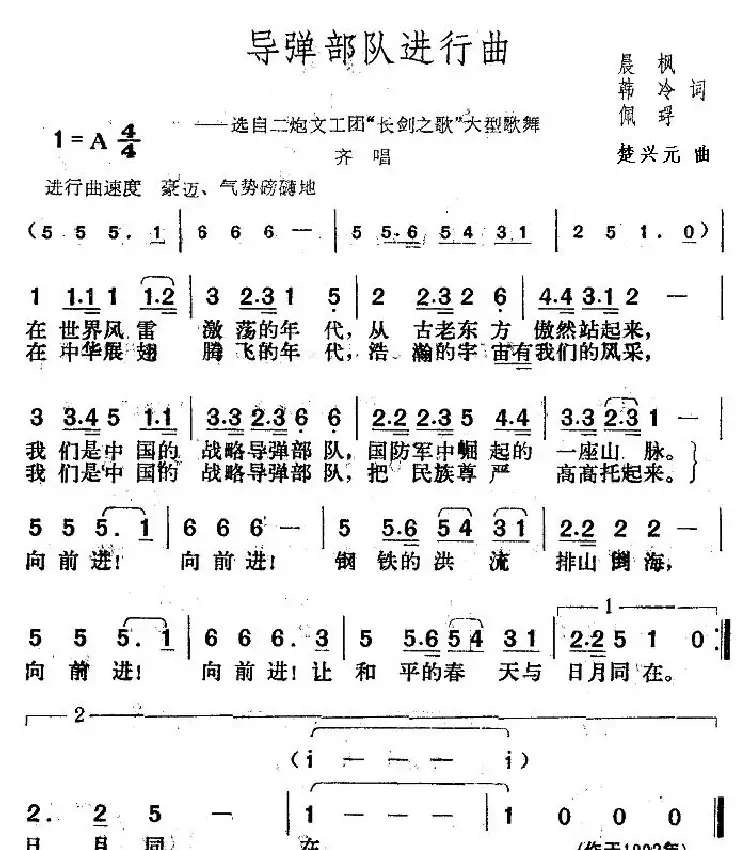 导弹部队进行曲
晨枫
韩冷 词
佩
——选自二炮文工团“长剑之歌”大型歌舞
1=A 4/4
齐唱
楚兴元 曲
进行曲速度 豪迈、气势磅礴地
(5 5 5. 1 | 6 6 6 — | 5 5.6 5 4 3 1 | 2 5 1. 0)
1 1.1 1 1.2 | 3 2.3 1 5 | 2 2.3 2 6 | 4.4 3.1 2 — |
在 世界风 雷 激 荡的年 代, 从 古老东 方 傲然站起来,
在 中华展 翅 腾 飞的年 代, 浩 瀚的宇 宙有我们的风采,
3 3.4 5 1.1 | 3.3 2.3 6 6 | 2.2 2.3 5 4.4 | 3.3 2.3 1 — |
我 们是中 国的 战略导弹部 队, 国防军中崛 起的 一座山 脉。
我 们是中 国的 战略导弹部 队, 把 民族尊 严 高高托起来。
5 5 5. 1 | 6 6 6 — | 5 5.6 5 4 3 1 | 2.2 2 2 — |
向 前 进! 向 前 进! 钢 铁的 洪 流 排山 倒 海,
1
5 5 5. 1 | 6 6 6. 3 | 5 5.6 5 4 3 1 | 2.2 5 1 0 :|
向 前 进! 向 前 进! 让 和 平的春 天与 日月同 在。
2
(i — — — i)
2. 2 5 — | 1 — — — | 1 0 0 0 ‖
日 月 同 在